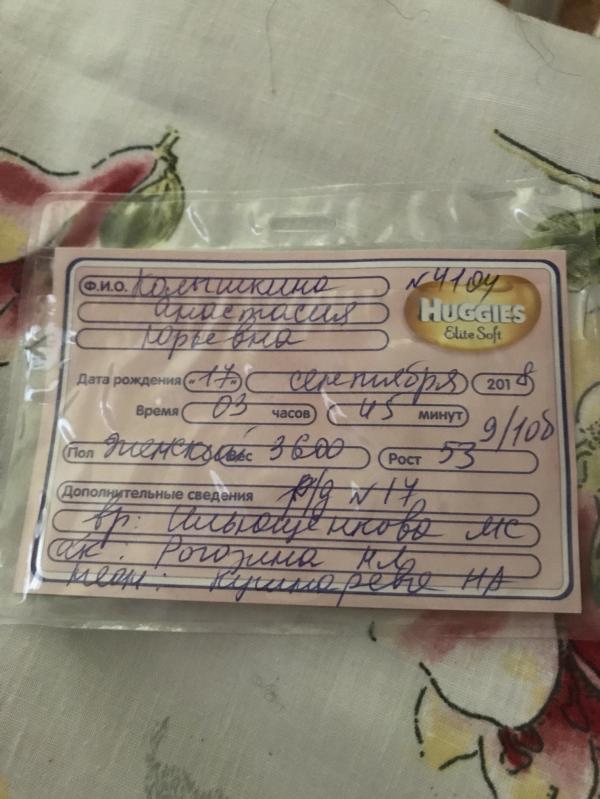 Ф.И.О. Колышкина N 4104
Анастасия
HUGGIES
Elite Soft
Юрьевна
Дата рождения «17» сентября 2018
Время 03 часов 45 минут
9/10б
Пол женский Вес 3600 Рост 53
Дополнительные сведения р/д N 17
вр: Ильющенкова МС
ак: Рогозина НЛ
НА